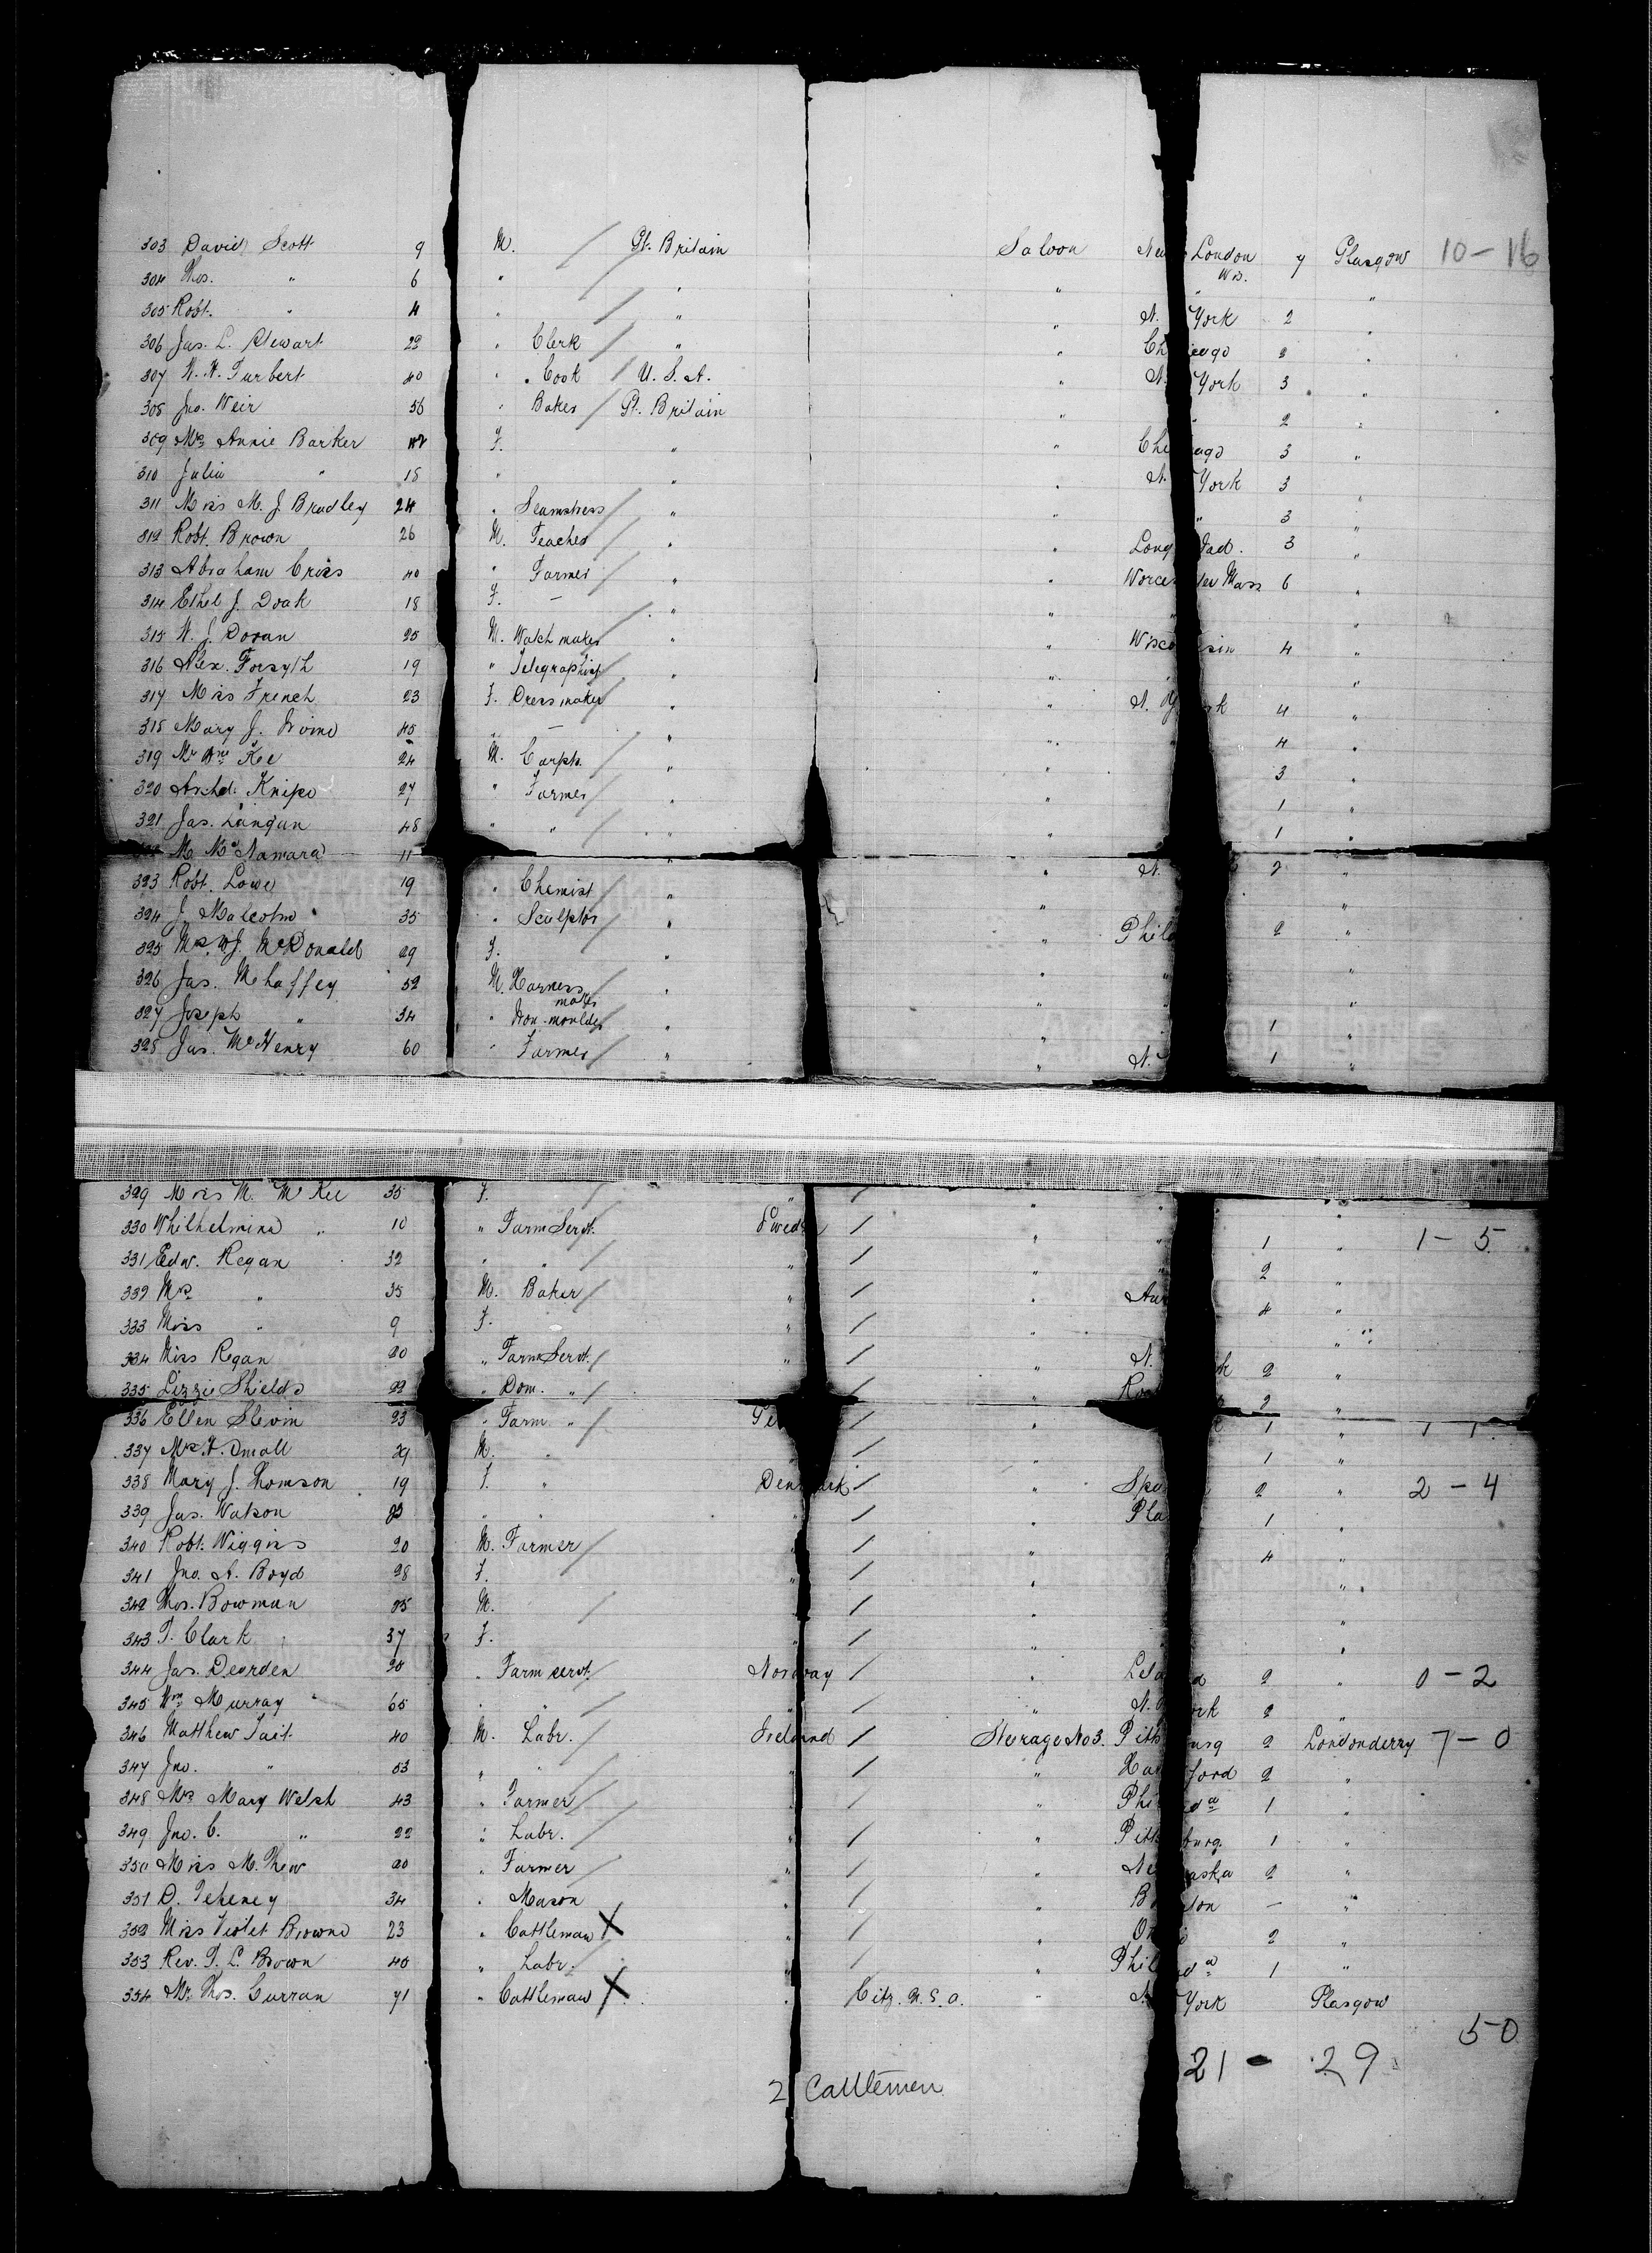 303 David Scott 9 M. / Gt. Britain Saloon New London Wis. 7 Glasgow 10-16
304 Thos. " 6 " " " " "
305 Robt. " 4 " / " " N. York 2 "
306 Jas. L. Stewart 29 " Clerk / " " Chicago 2 "
307 W. H. Turbert 40 " Cook / U. S. A. " N. York 3 "
308 Jno. Weir 56 " Baker / Gt. Britain " " 2 "
309 Mrs Annie Barker 42 F. " " Chicago 3 "
310 Julia " 18 " " " N. York 3 "
311 Miss M. J. Bradley 24 " Seamstress / " " " 3 "
312 Robt. Brown 26 M. Teacher / " " Long 3 "
313 Abraham Criss 40 " Farmer / " " Worcester Mass 6 "
314 Ethel J. Doak 18 F. - / " " " "
315 W. J. Doran 25 M. Watch maker / " " Wisconsin 4 "
316 Alex. Forsyth 19 " Telegraphist / " " " "
317 Miss French 23 F. Dress maker / " " N. York 4 "
318 Mary J. Irvine 45 " - / " " " 4 "
319 Mr Wm Kee 24 M. Carptr. / " " 3 "
320 Archd. Knipe 27 " Farmer / " " 1 "
321 Jas. Langan 48 " " / " " 1 "
M McNamara 11 " " " N. 2 "
323 Robt. Lowe 19 " Chemist / " " "
324 J. Malcolm 35 " Sculptor / " " Phila 2 "
325 Mrs. W. J. McDonald 29 F. " " " "
326 Jas. Mehaffey 52 M. Harness maker / " " "
327 Joseph " 34 " Iron-moulder / " " 1 "
328 Jas. McHenry 60 " Farmer / " " N. 1 "
329 Miss M. McKee 35 F. / " / " " "
330 Whilhelmina " 10 " Farm Servt. Sweden / " " 1 " 1-5
331 Edw. Regan 32 " " / " / " " 2 "
332 Mrs " 35 M. Baker / " / " Aur 4 "
333 Miss " 9 F. " / "
334 Miss Regan 20 " Farm Servt. / " / " N. k 2 "
335 Lizzie Shields 22 " Dom. " / / " Ro 2 "
336 Ellen Slevin 23 " Farm " / Ge / " 1 " 1 1
337 Mrs. H. Small 29 M. " / " 1 "
338 Mary J. Thomson 19 F. " Denmark / " Spo 2 " 2-4
339 Jas. Watson " " " / " Pla 1 "
340 Robt. Wiggins 20 M. Farmer / " / " 4 "
341 Jno. A. Boyd 28 F. / " / " "
342 Thos. Bowman M. / / " "
343 T. Clark 37 F. " / " " "
344 Jas. Dearden 20 " Farm servt. / Norway / " Le d 2 " 0-2
345 Wm Murray 65 " " / " / " N. York 2 "
346 Matthew Tait 40 M. Labr. / Ireland / Sterage No 3. Pittsburg 2 Londonderry 7-0
347 Jno. " 53 " " / " / " Hartford 2 "
348 Mrs Mary Welsh 43 " Farmer / " / " Philada 1 "
349 Jno. C. " 22 " Labr. / " / " Pittsburg. 1 "
350 Miss M. Thew 20 " Farmer / " / " Nebraska 2 "
351 D. 34 " Mason " / " Boston - "
352 Miss Violet Browne 23 " Cattleman X " / " 2 "
353 Rev. T. L. Brown 40 " Labr. " / " Philada 1 "
354 Mr. Thos. Curran 71 " Cattleman X " / Citz. U. S. A. " N. York Glasgow
50
21 - 29
2 Cattlemen